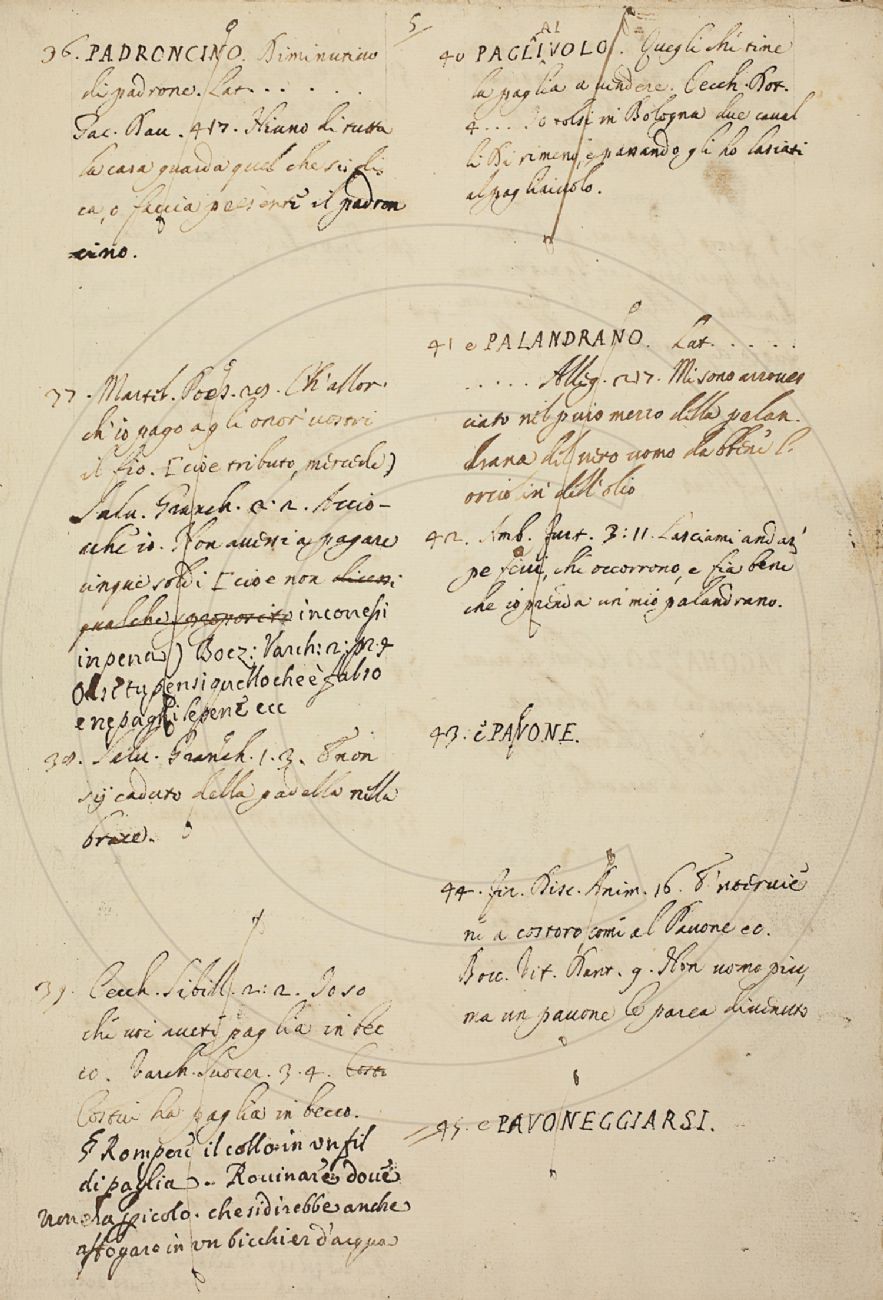 5
36. PADRONCINO. Diminutivo
di padrone. Lat. . . . . .
Tac. Dav. 417. Niuno di tutta
la casa guarda quel che si di-
ca, o faccia presente il padron
cino.
37. Martel. Poes. 29. Ch'allor
ch'io pago agli onor' vostri
il fio. [cioè tributo, mercede)
Salv. Granch. 2. 2. Accio-
cchè io. Non avessi a pagare
cinque soldi [cioè non
qualche sproposito incorressi
in pena) Boez: Varch: 2: pr 4
Or se tu pensi quello che è falso
e ne paghi le pene ecc
38. Salv. Granch. 1. 3. E non
sij caduto della padella nella
brace.
39. Cecch. Sibill. 2: 2. Io so
che voi avete paglia in bec
co. Varch. Suocer. 3. 4. Costi
Costui ha paglia in becco.
§ Rompere il collo in un fil
di paglia. Rovinare dove
non è la pericolo. che si direbbe anche
affogare in un bicchier d'acqua
40 PAGLIVOLO. Quegli che tiene
AI
la paglia a vendere. Cecch. Dot.
4. . . . Io tolsi in Bologna due caval
li Di rimeno, e passando gli ho lasciati
al pagliaiuolo.
41 e PALANDRANO. Lat. . . . . .
. . . . . Alleg. 217. Misono arroves
ciato nel puro mezzo della palan-
drana
orcio in dell'olio
42. Amb. Furt. 3: 11. Lasciami andar'
pe' che occorrono, e fia bene
che io prenda un mio palandrano.
43. e PAVONE.
44. Fir. Disc. Anim. 16. E' n'interviè
ne a costoro, come al Pavone ec.
Bocc. Vit. Dant. 9. Non uomo più,
ma un pavone le parea divenuto
45. e PAVONEGGIARSI.